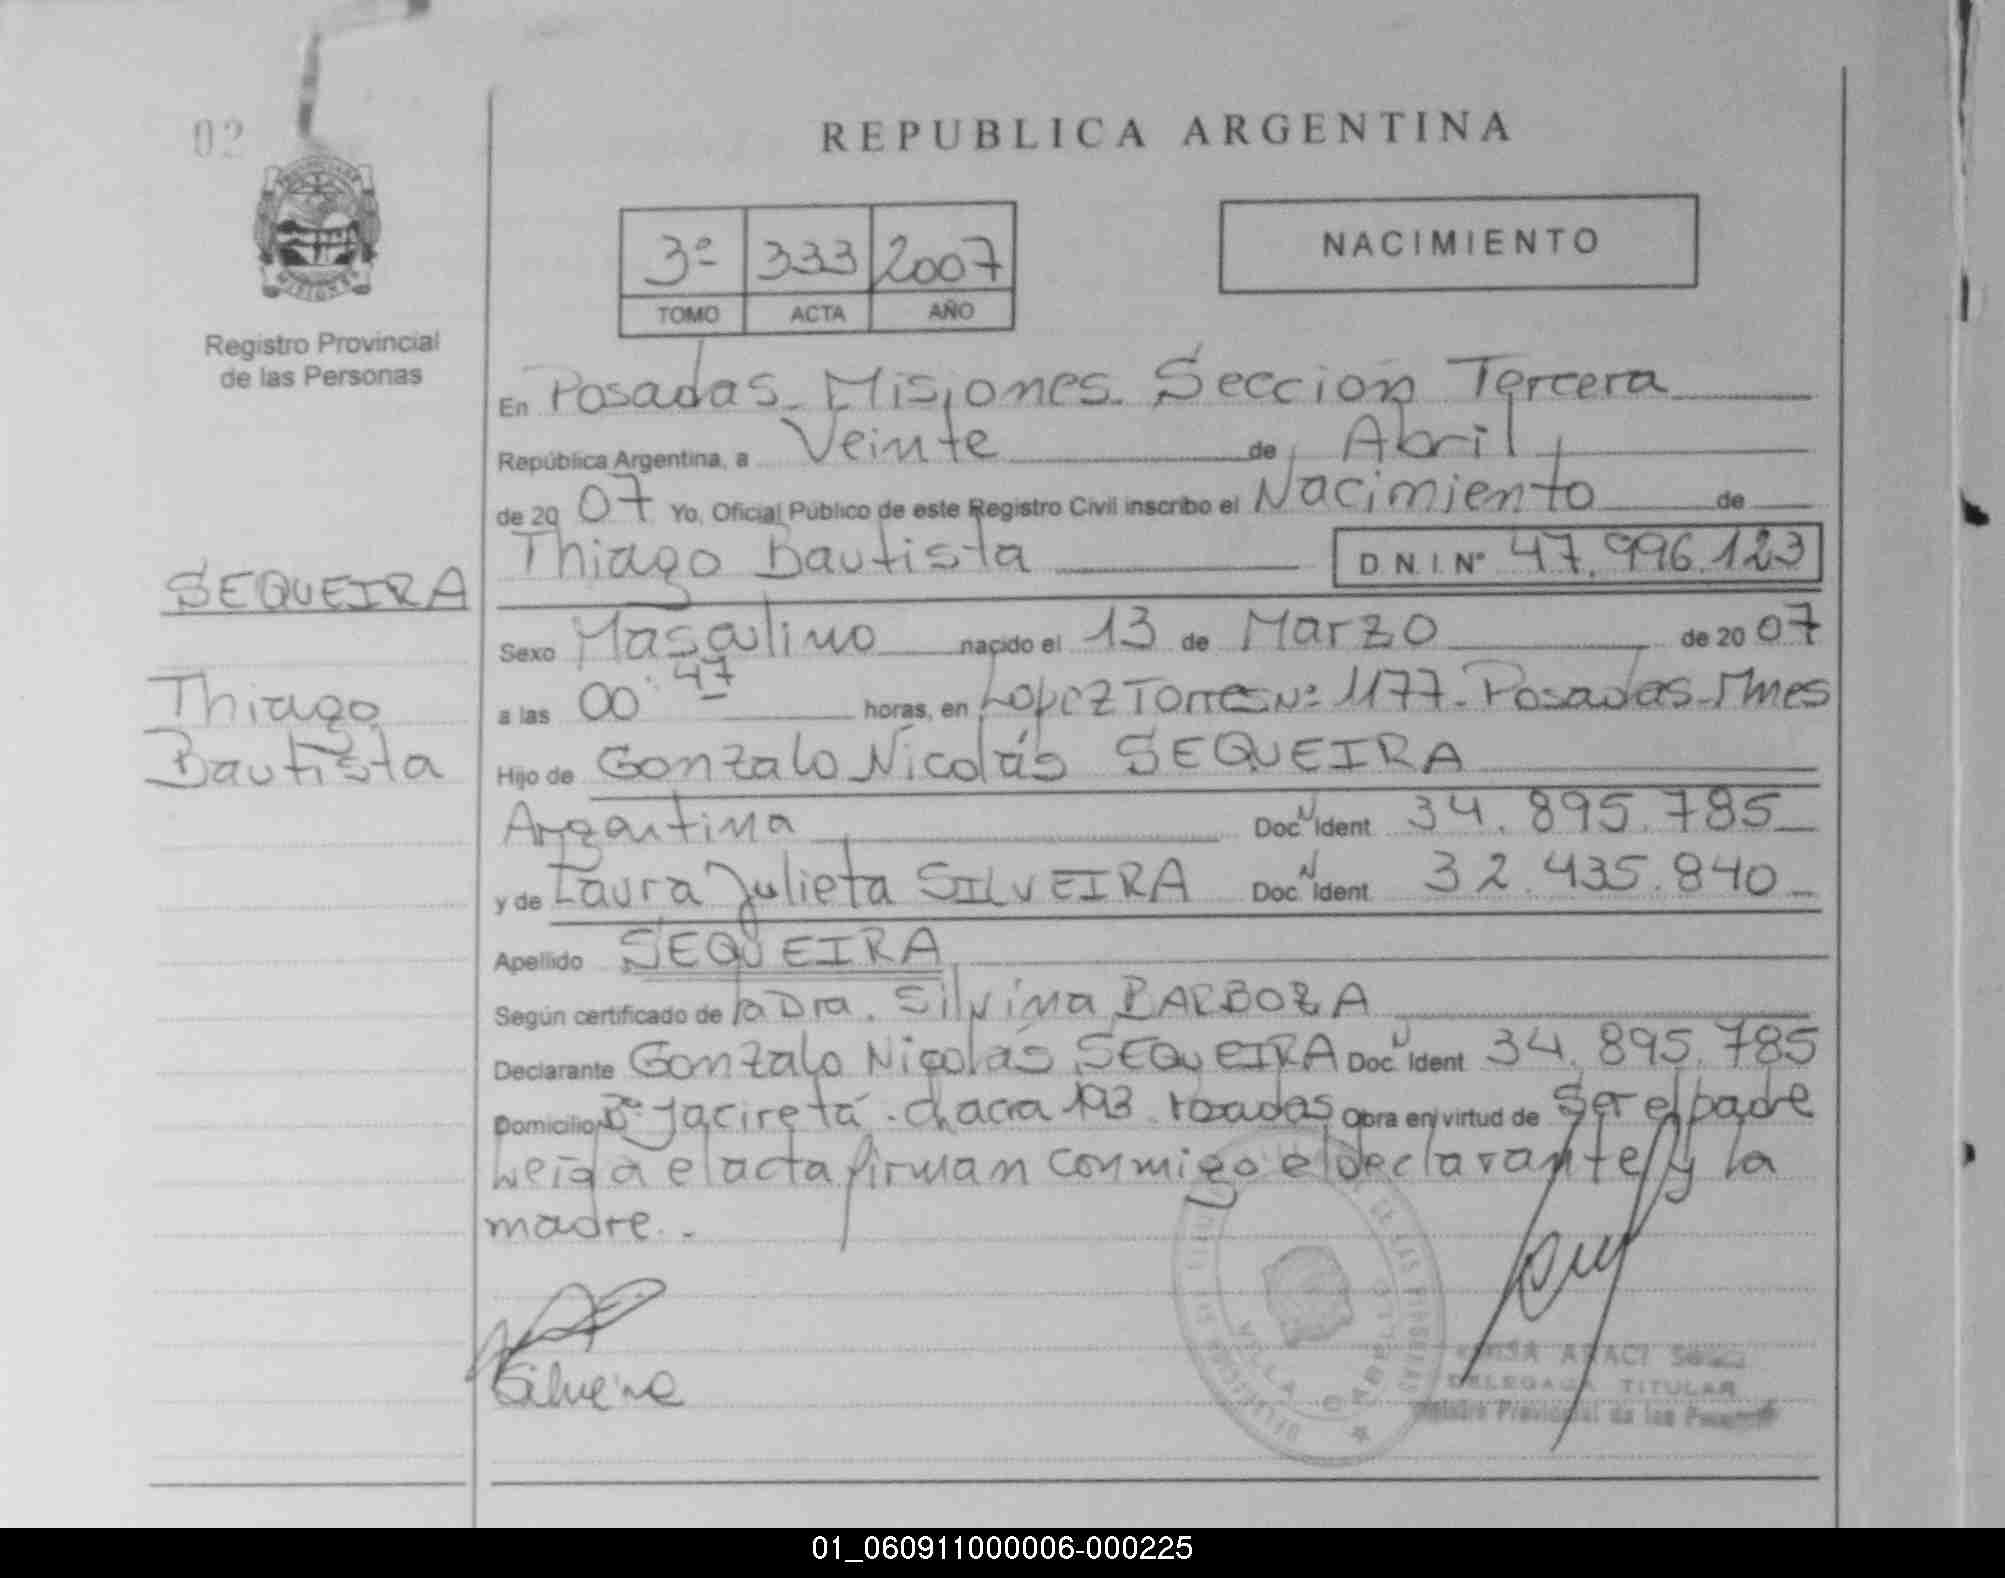 02
REPUBLICA ARGENTINA
3º 333 2007
TOMO ACTA AÑO
NACIMIENTO
MISIONES
Registro Provincial
de las Personas
En Posadas - Misiones. Seccion Tercera
República Argentina, a Veinte de Abril
de 2007 Yo, Oficial Público de este Registro Civil inscribo el Nacimiento de
Thiago Bautista D.N.I. Nº 47.996.123
SEQUEIRA
Sexo Masculino nacido el 13 de Marzo de 2007
Thiago
a las 00:47 horas, en Lopez Torres Nº 1177 - Posadas - Mnes
Bautista
Hijo de Gonzalo Nicolás SEQUEIRA
Argentina Doc. N Ident 34.895.785
y de Laura Julieta SILVEIRA Doc. N Ident 32.435.840
Apellido SEQUEIRA
Según certificado de la Dra. Silvina BARBOZA
Declarante Gonzalo Nicolás SEQUEIRA Doc. N Ident 34.895.785
Domicilio Bº Yaciretá - chacra 193 - Posadas Obra en virtud de ser el padre
leída el acta firman conmigo el declarante y la
madre.-
Silveira
VILLA CABELLO
DE LAS PERSONAS
ARACI
DELEGADA TITULAR
Registro Provincial de las Personas
01_060911000006-000225